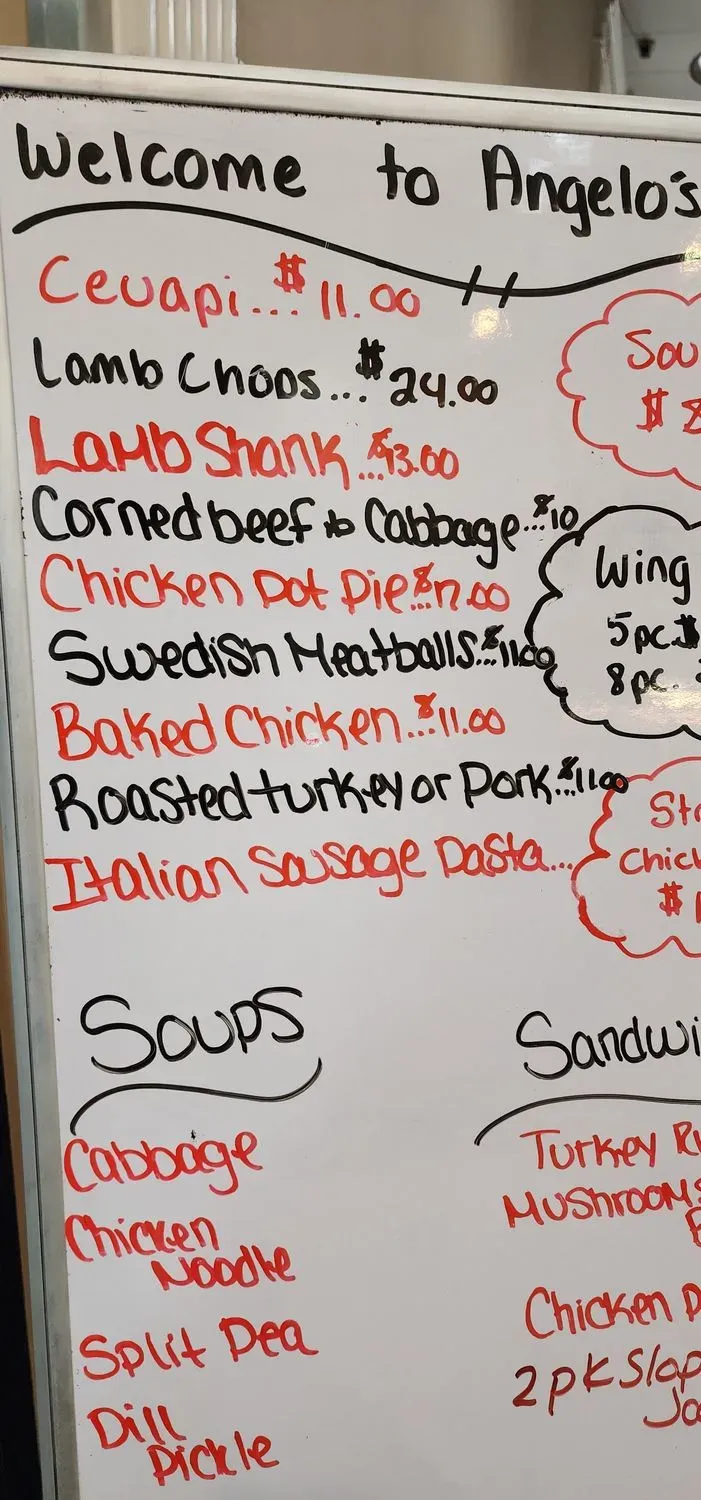 Welcome to Angelo's
Cevapi...$11.00
Lamb Chops...$24.00
Lamb Shank...$13.00
Corned beef & Cabbage...$10
Chicken Pot Pie...$11.00
Swedish Meatballs...$11.00
Baked Chicken...$11.00
Roasted turkey or Pork...$11.00
Italian Sausage Pasta...
Sou
$
Wing
5pc.$
8pc.
Str
Chick
$1
Soups
Cabbage
Chicken
Noodle
Split Pea
Dill
Pickle
Sandwi
Turkey Ru
Mushrooms
Chicken P
2pk Slop
Jo